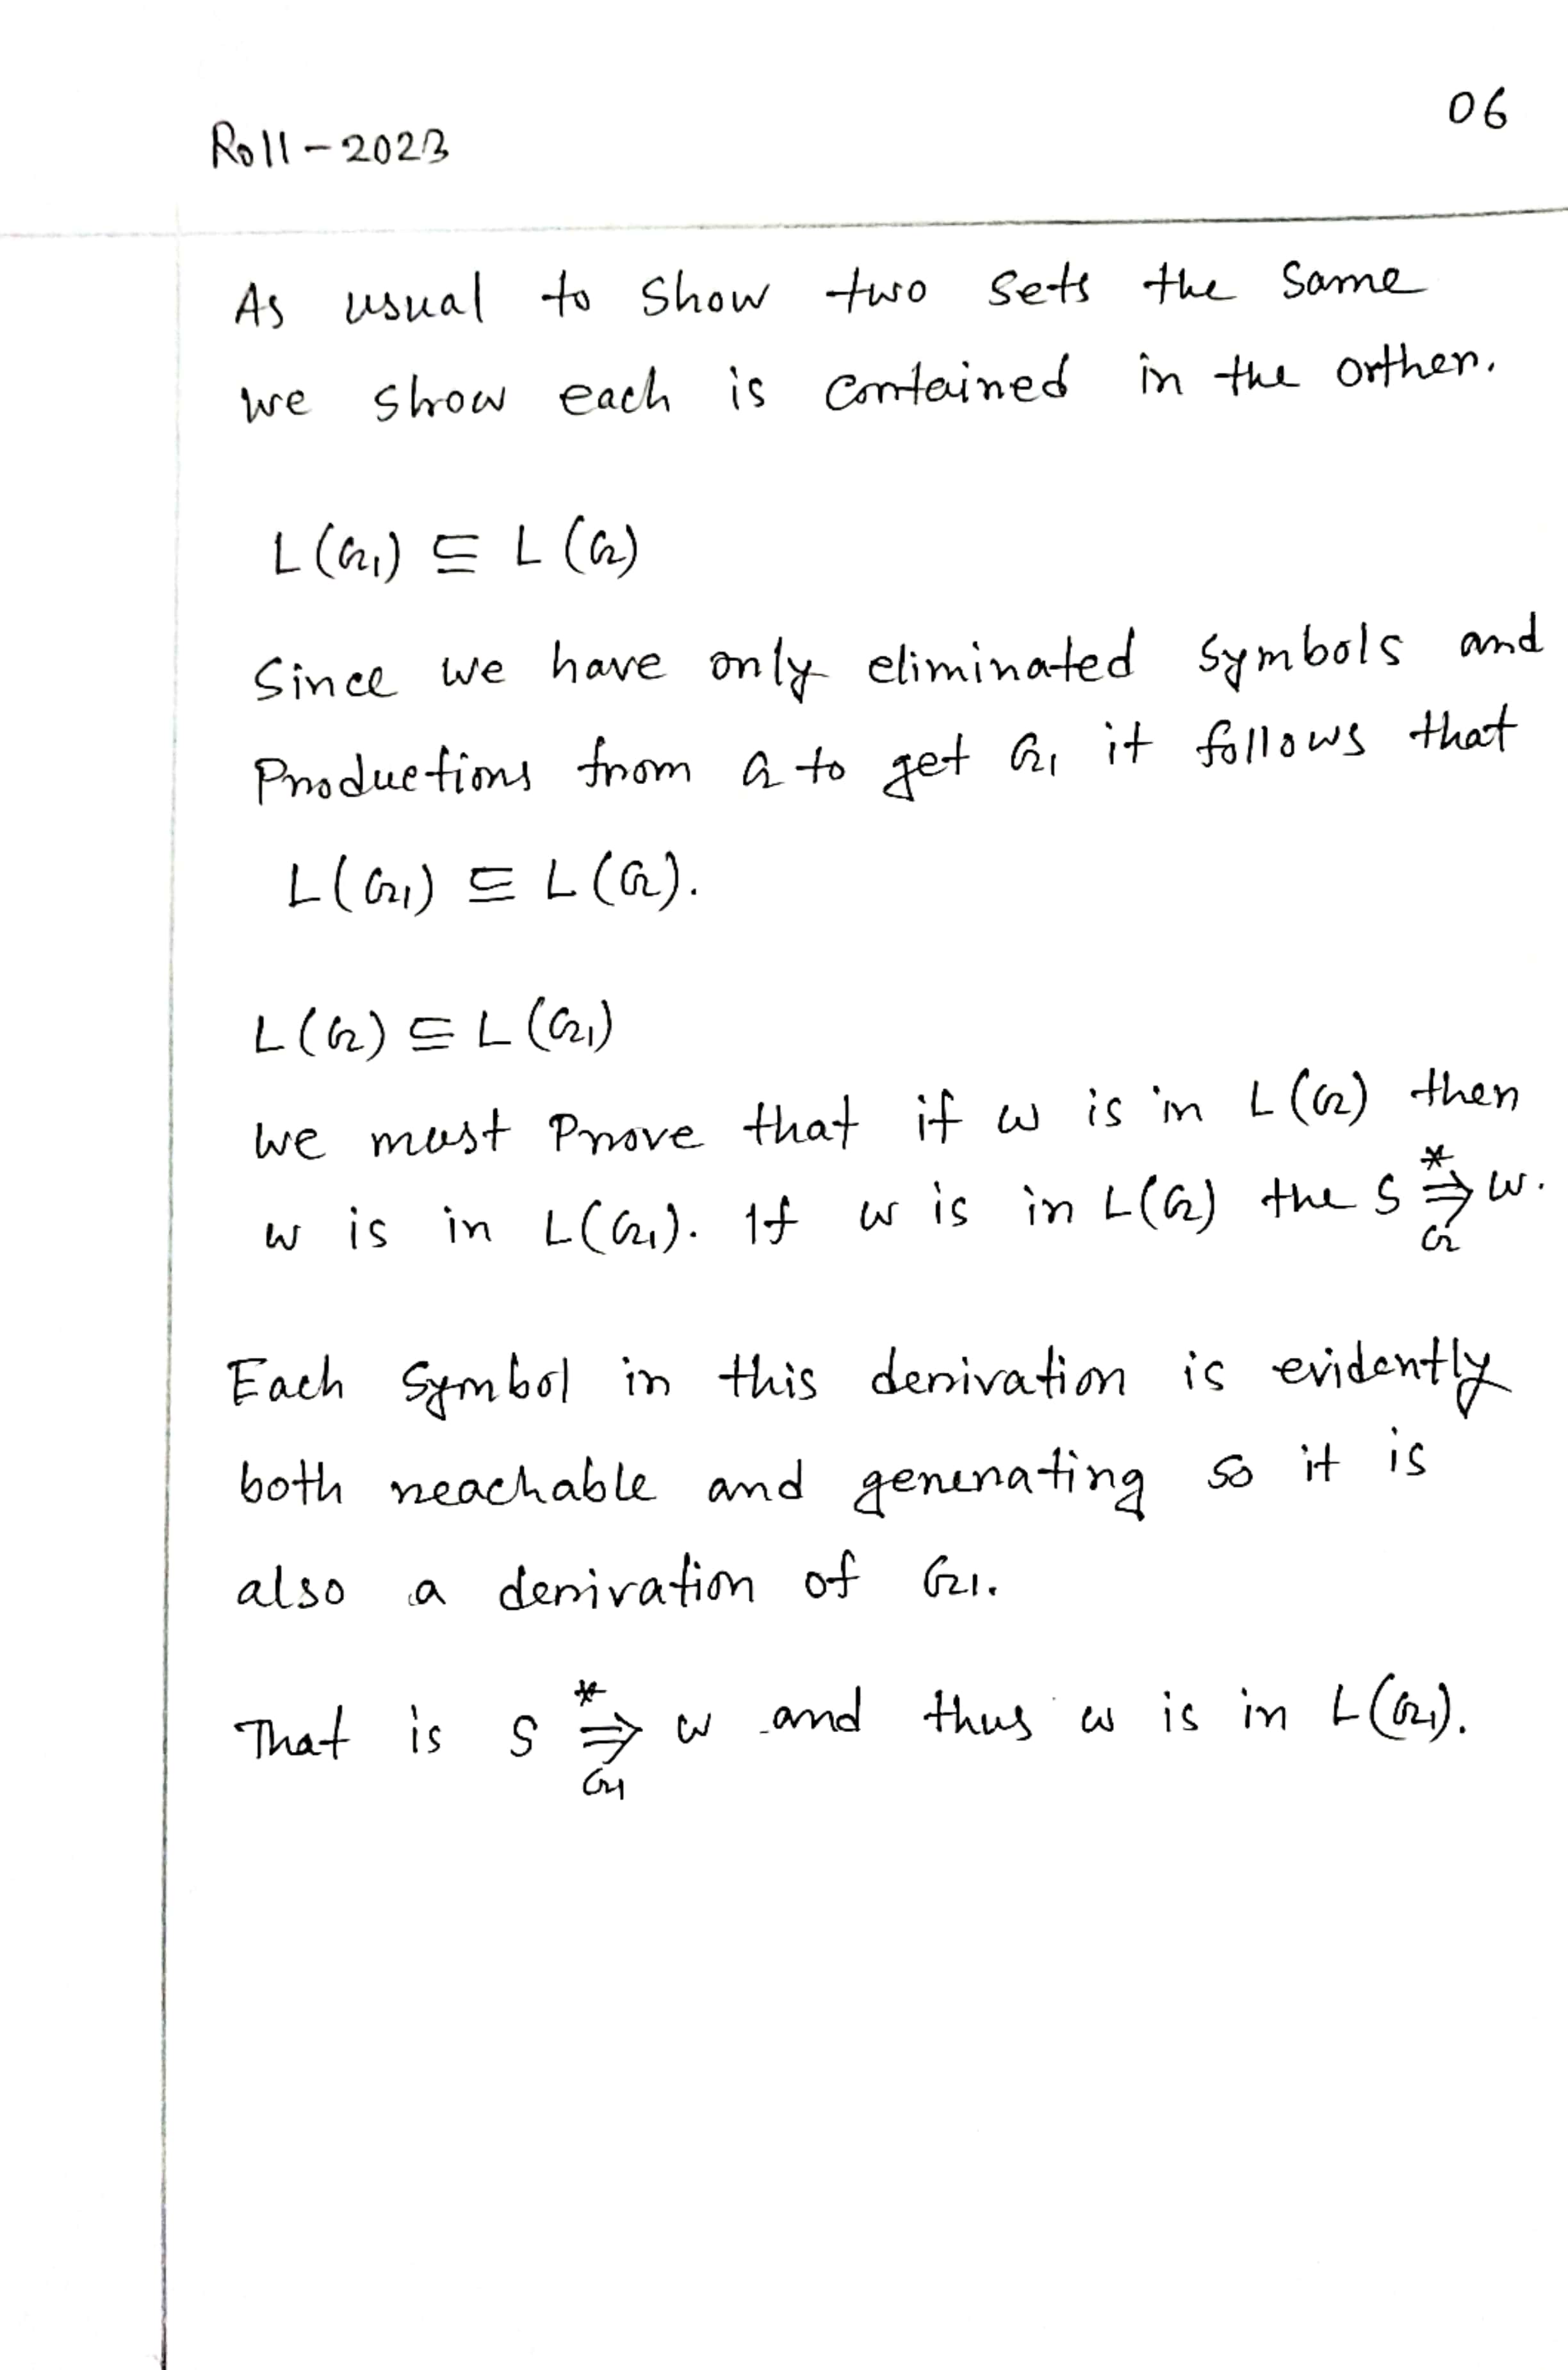 06
Roll-2023
As usual to show two sets the same
we show each is contained in the orther.
L(G1) ⊆ L(G)
Since we have only eliminated symbols and
Productions from G to get G1 it follows that
L(G1) ⊆ L(G).
L(G) ⊆ L(G1)
we must Prove that if w is in L(G) then
w is in L(G1). If w is in L(G) the S *⇒G w.
Each symbol in this derivation is evidently
both reachable and generating so it is
also a derivation of G1.
That is S *⇒G1 w and thus w is in L(G1).